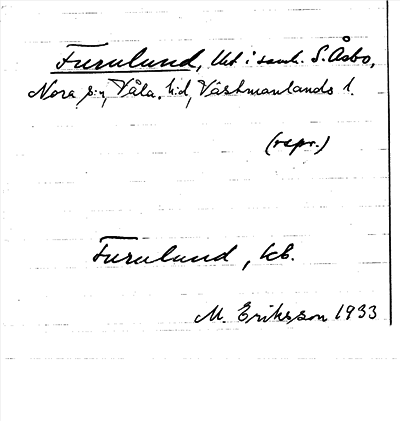 Furulund, lht i samh. S. Åsbo,
Nora sn, Våla hd, Västmanlands l.
(repr.)
Furulund, kb.
M. Eriksson 1933